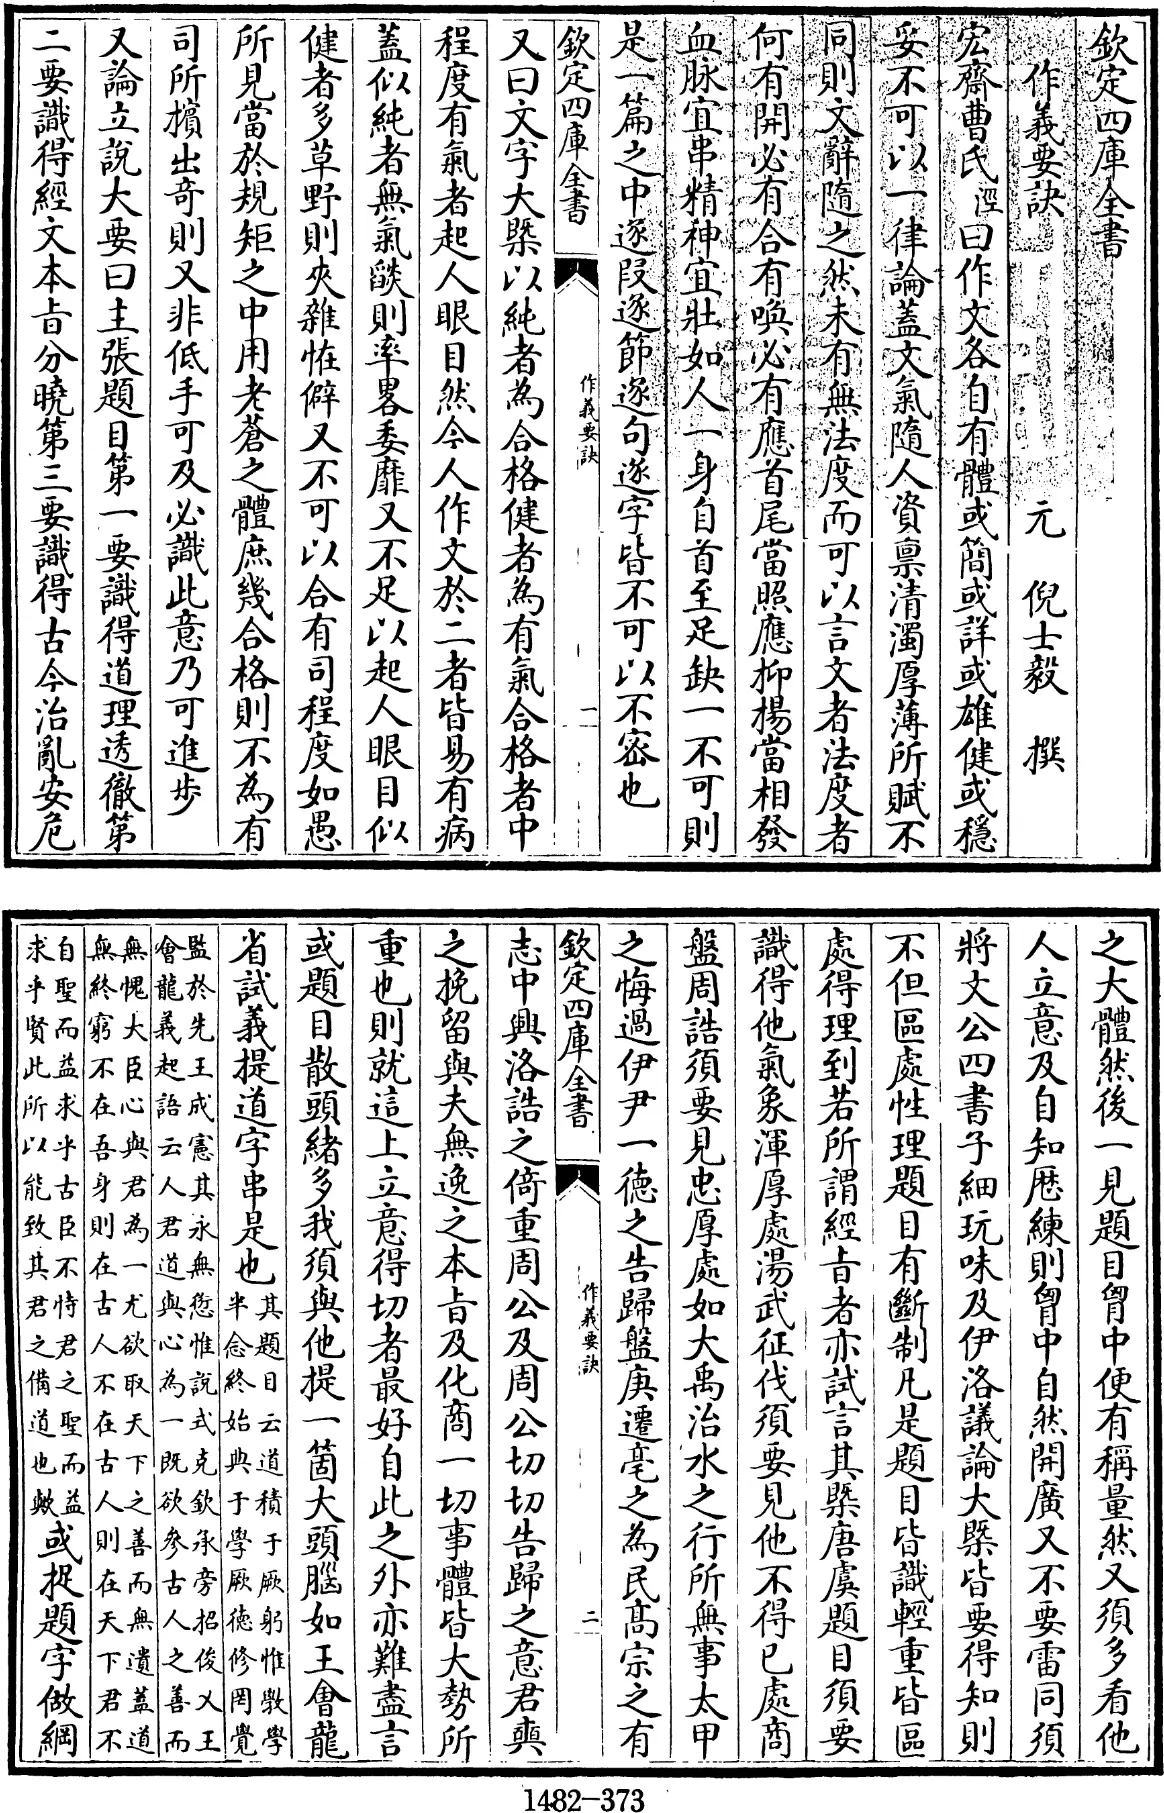 欽定四庫全書
作義要訣
元 倪士毅 撰
宏齋曹氏涇曰作文各自有體或簡或詳或雄健或穩
妥不可以一律論蓋文氣隨人資禀清濁厚薄所賦不
同則文辭隨之然未有無法度而可以言文者法度者
何有開必有合有喚必有應首尾當照應抑揚當相發
血脉宜串精神宜壯如人一身自首至足缺一不可則
是一篇之中逐叚逐節逐句逐字皆不可以不密也
欽定四庫全書
作義要訣
一
又曰文字大槩以純者為合格健者為有氣合格者中
程度有氣者起人眼目然今人作文於二者皆易有病
蓋似純者無氣燄則率畧委靡又不足以起人眼目似
健者多草野則夾雜怪僻又不可以合有司程度如愚
所見當於規矩之中用老蒼之體庶幾合格則不為有
司所擯出奇則又非低手可及必識此意乃可進步
又論立說大要曰主張題目第一要識得道理透徹第
二要識得經文本旨分曉第三要識得古今治亂安危
之大體然後一見題目胷中便有稱量然又須多看他
人立意及自知歴練則胷中自然開廣又不要雷同須
將文公四書子細玩味及伊洛議論大槩皆要得知則
不但區處性理題目有斷制凡是題目皆識輕重皆區
處得理到若所謂經旨者亦試言其槩唐虞題目須要
識得他氣象渾厚處湯武征伐須要見他不得已處商
盤周誥須要見忠厚處如大禹治水之行所無事太甲
之悔過伊尹一德之告歸盤庚遷亳之為民髙宗之有
欽定四庫全書
作義要訣
二
志中興洛誥之倚重周公及周公切切告歸之意君奭
之挽留與夫無逸之本旨及化商一切事體皆大勢所
重也則就這上立意得切者最好自此之外亦難盡言
或題目散頭緒多我須與他提一箇大頭腦如王㑹龍
省試義提道字串是也其題目云道積于厥躬惟斆學
半念終始典于學厥德修罔覺
監於先王成憲其永無愆惟說式克欽承旁招俊乂王
㑹龍義起語云人君道與心為一既欲參古人之善而
無愧大臣心與君為一尤欲取天下之善而無遺蓋道
無終窮不在吾身則在古人不在古人則在天下君不
自聖而益求乎古臣不恃君之聖而益
求乎賢此所以能致其君之備道也歟或捉題字做綱
1482-373